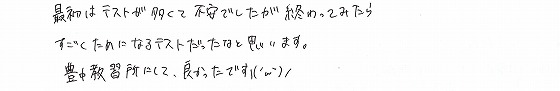 最初はテストが多くて不安でしたが終わってみたら
すごくためになるテストだったなと思います。
豊中教習所にして、良かったです!('ω')/